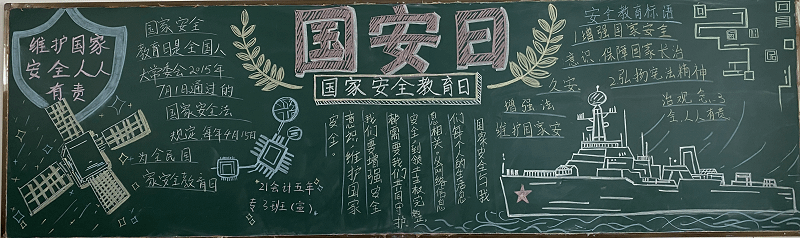 维护国家
安全人人
有责
国家安全
教育日是全国人
大常委会2015年
7月1日通过的
国家安全法
规定每年4月15日
为全民国
家安全教育日
国安日
国家安全教育日
"21会计五年
专3班(宣)"
国家安全与我
们每个人的生活息
息相关,从网络信息
安全到领土主权完整
都需要我们共同守护
我们要增强安全
意识,维护国家
安全。
安全教育标语
1增强国家安全
意识,保障国家长治
久安。2弘扬宪法精神
增强法
治观念,3
维护国家安
全,人人有责